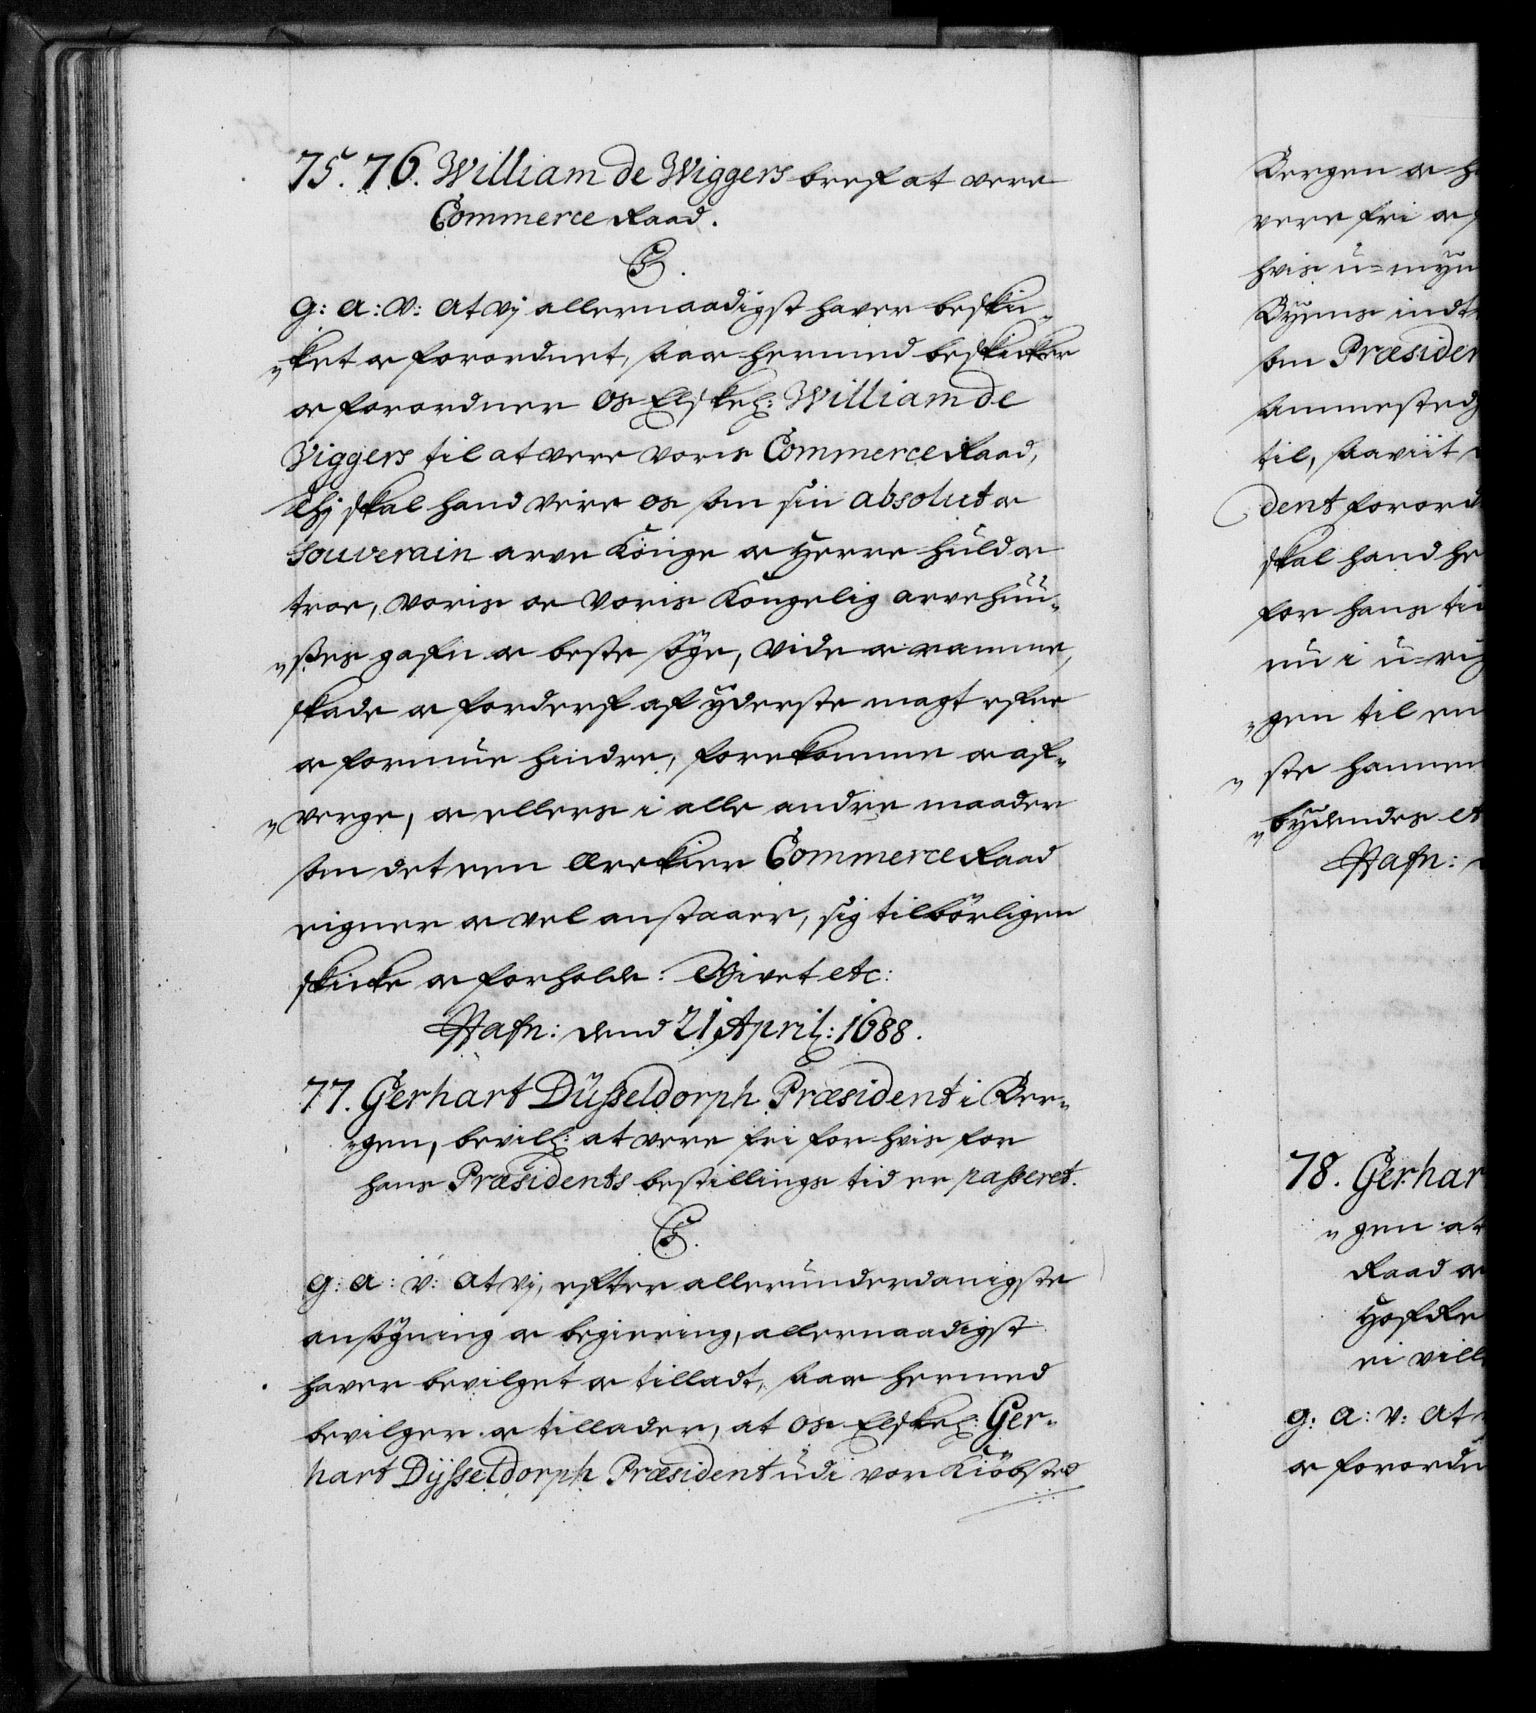 75. 76. William de Wiggers bref at vere
Commerce Raad.
C5.
G: A: V: At vj allernaadigst hafver beskic„
„ket oc forordnet, saa oc hermed beskicker
oc forordner Os Elskel: William de
Viggers til at vere voris Commerce Raad,
Thj skal hand vere os som sin absolut oc
souverain arve Konge oc Herre huld oc
troe, voris oc voris Kongelig arvehuu„
„ses gafn oc beste söge, vide oc ramme,
skade oc forderf af yderste magt efne
oc formue hindre, forekomme oc af„
„verge, oc ellers i alle andre maader
som det een ærekier Commerce Raad
eigner oc vel anstaaer, sig tilbörligen
skicke oc forholde: Givet etc:
Hafn: dend 21 April: 1688.
77. Gerhart Düsseldorph Præsident i Ber„
„gen, bevill: at vere fri for hvis for
hans Præsidents bestillings tid er passeret.
C5.
G: A: V: At vj, efter allerunderdanigste
ansögning oc begiering, allernaadigst
hafver bevilget oc tilladt, saa oc hermed
bevilger oc tillader, at os Elskel: Ger„
hart Dÿsseldorph Præsident udi vor Kiöbsted
Bergen oc
vere fri oc
hvis u=myn
Byens indt
som Præsiden
sammested
til, saaviit
dent forord
skal hand he
for hans tii
nu i u=rig
„gen til en
„ste hannem
„bydendes et
Hafn:
78. Gerhar
„gen at
Raad oc
Hof Re
ei vill
G: A: V: At
oc forordn